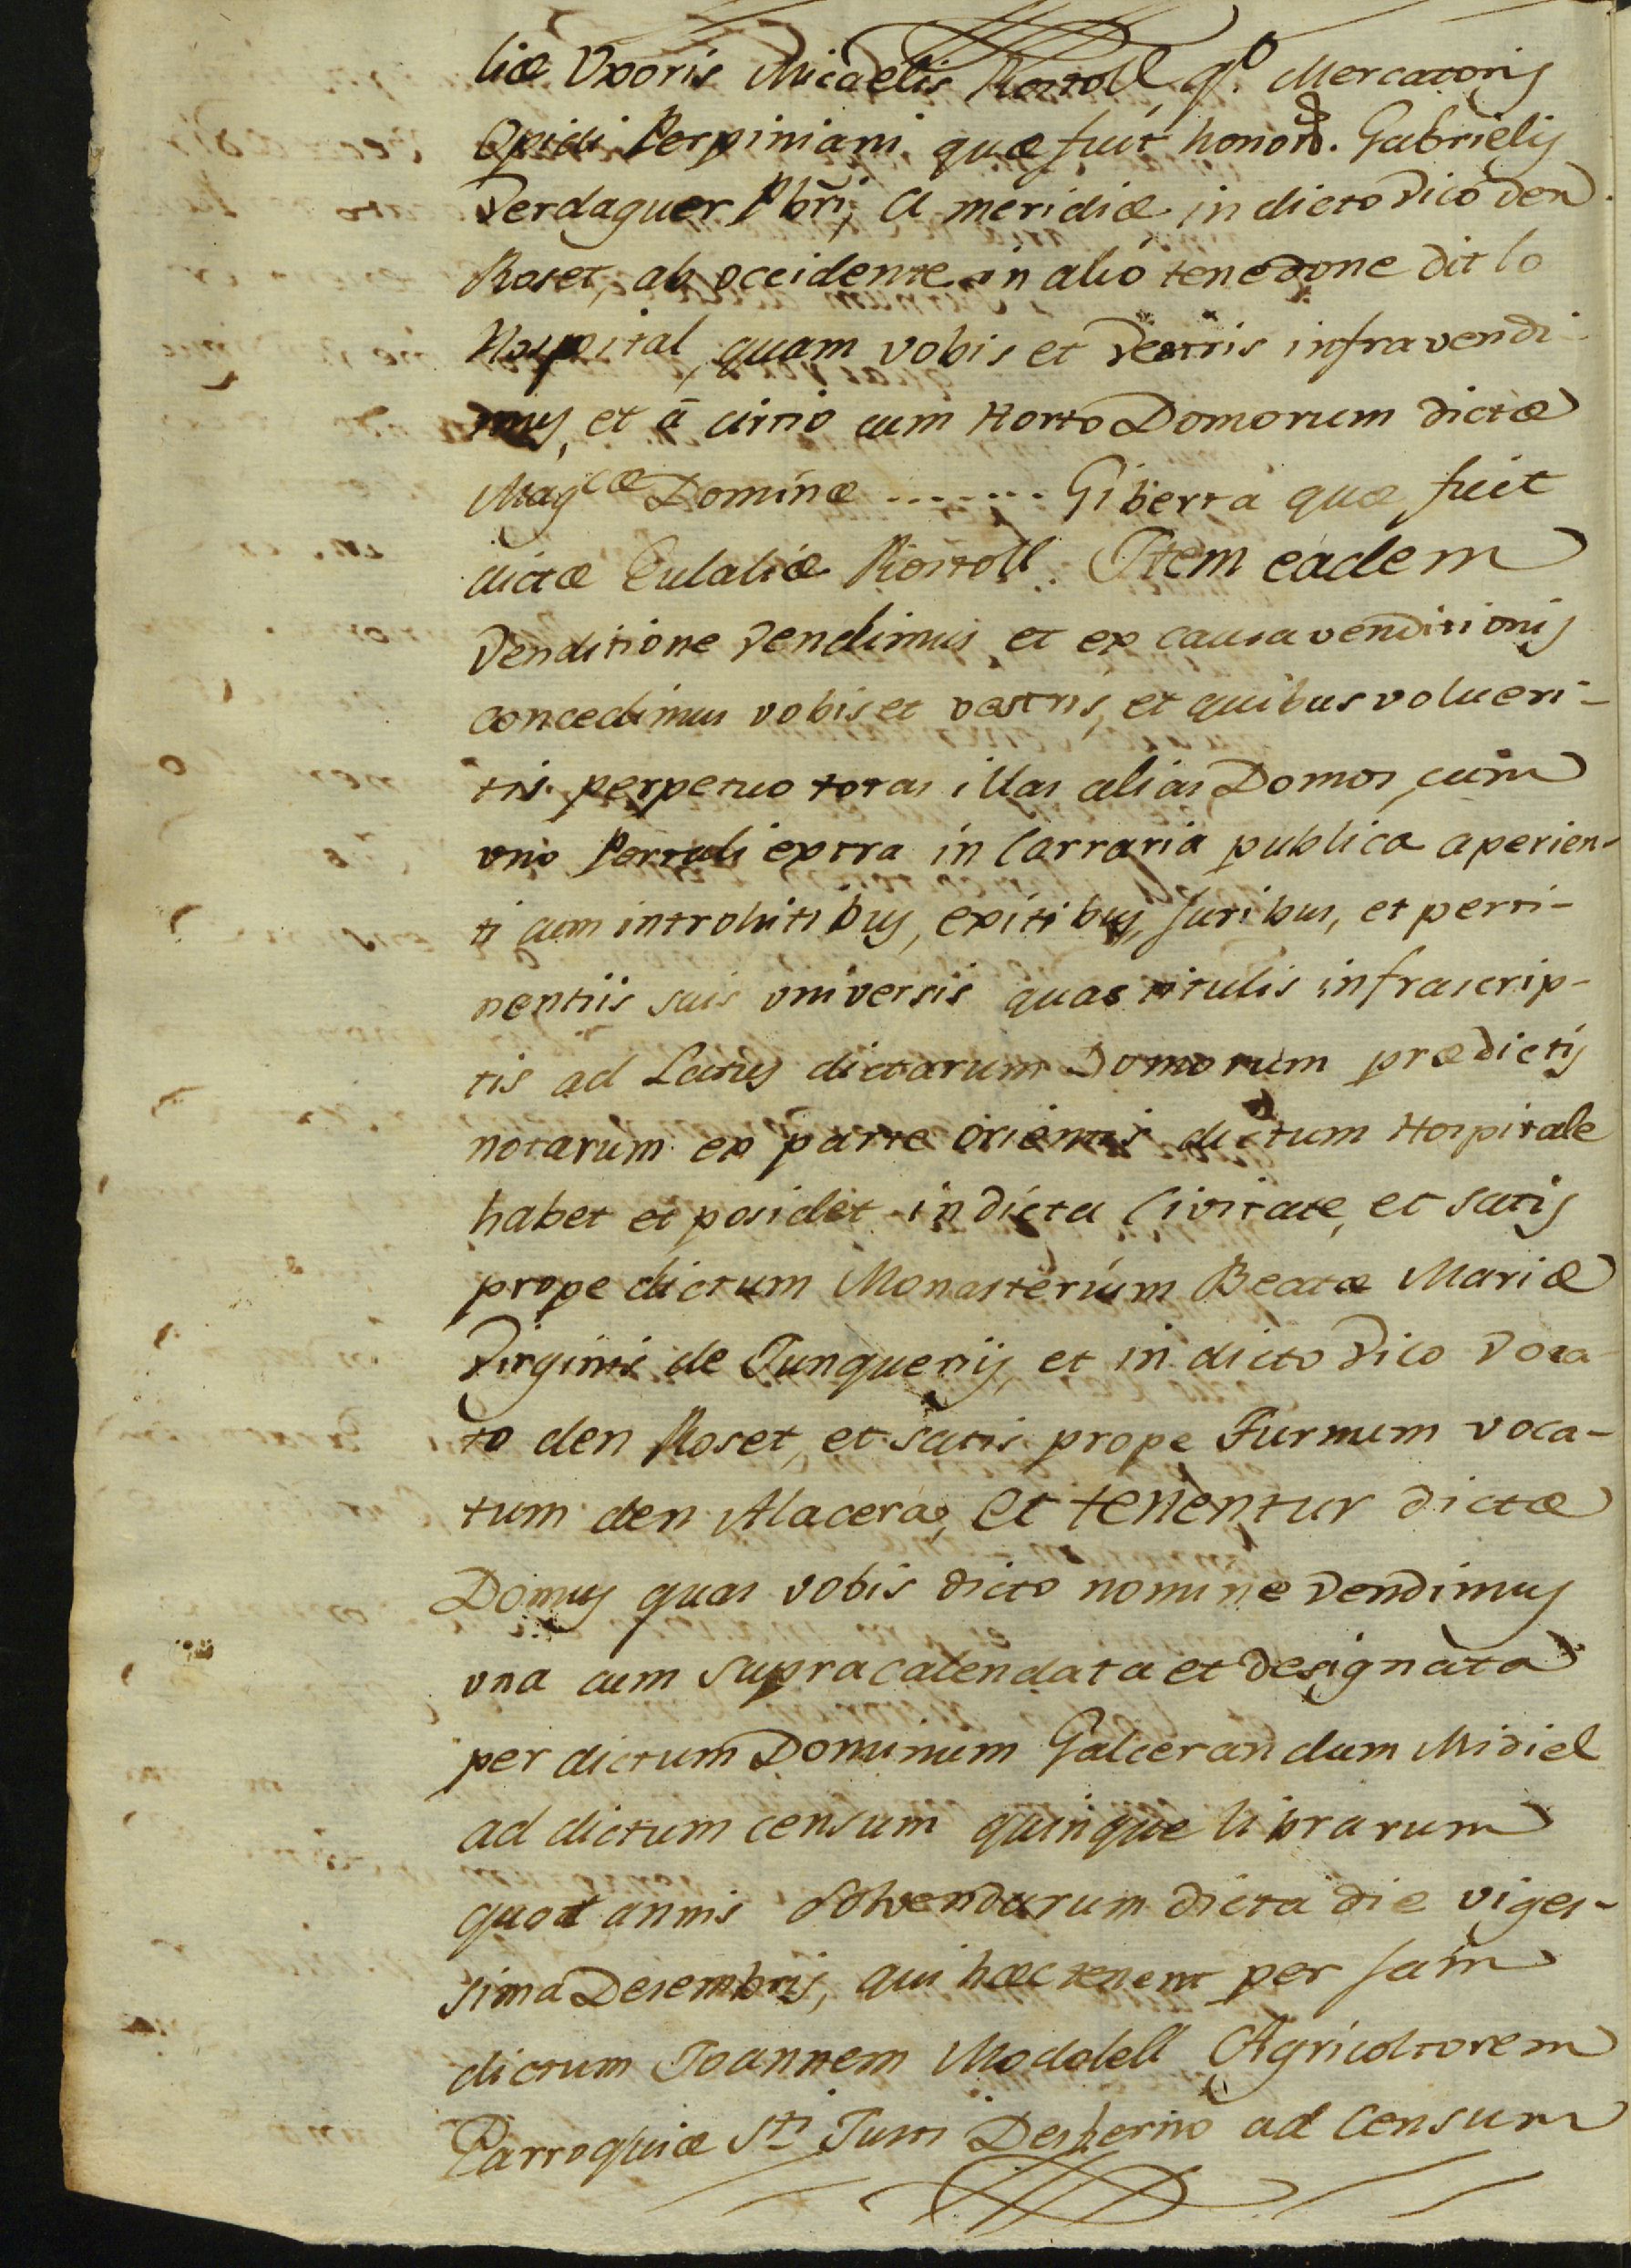 liæ Vxoris Micaelis Rostoll qº. Mercatoris
Opidi Perpiniani, quæ fuit honord. Gabrielis
Verdaguer Pbri, A meridiæ in dicto Vico den
Roset, ab occidente in alio tenedone dit lo
Hospital, quam vobis et vestris infra vendi-
mus, et á circio cum Horto Domorum dictæ
Magcæ Dominæ ....... Giberta quæ fuit
dictæ Eulaliæ Rostoll. Item eadem
Venditione vendimus, et ex causa venditionis
concedimus vobis et vestris, et quibus volueri-
tis perpetuo totas illas alias Domos, cum
vno Portali extra in Carraria publica aperien-
ti cum introhitibus, exitibus, juribus, et perti-
nentiis suis vniversis quas titulis infrascrip-
tis ad Latus dictarum Domorum prædictis
notarum ex parte orientis dictum Hospitale
habet et posidet in dicta Civitate, et satis
prope dictum Monasterium Beatæ Mariæ
Virginis de Junqueriis, et in dicto Vico Voca-
to den Roset, et satis prope Furnum voca-
tum den Alacera, et tenentur dictæ
Domus quas vobis dicto nomine Vendimus
vna cum supra calendata et designata
per dictum Dominum Galcerandum Midiel
ad dictum censum quinque librarum
quot annis solvendarum dicta die viges-
sima Desembris, qui hæc tenent per jam
dictum Joannem Modolell Agricoltorem
Parroquiæ Sti Justi Desberno ad Censum